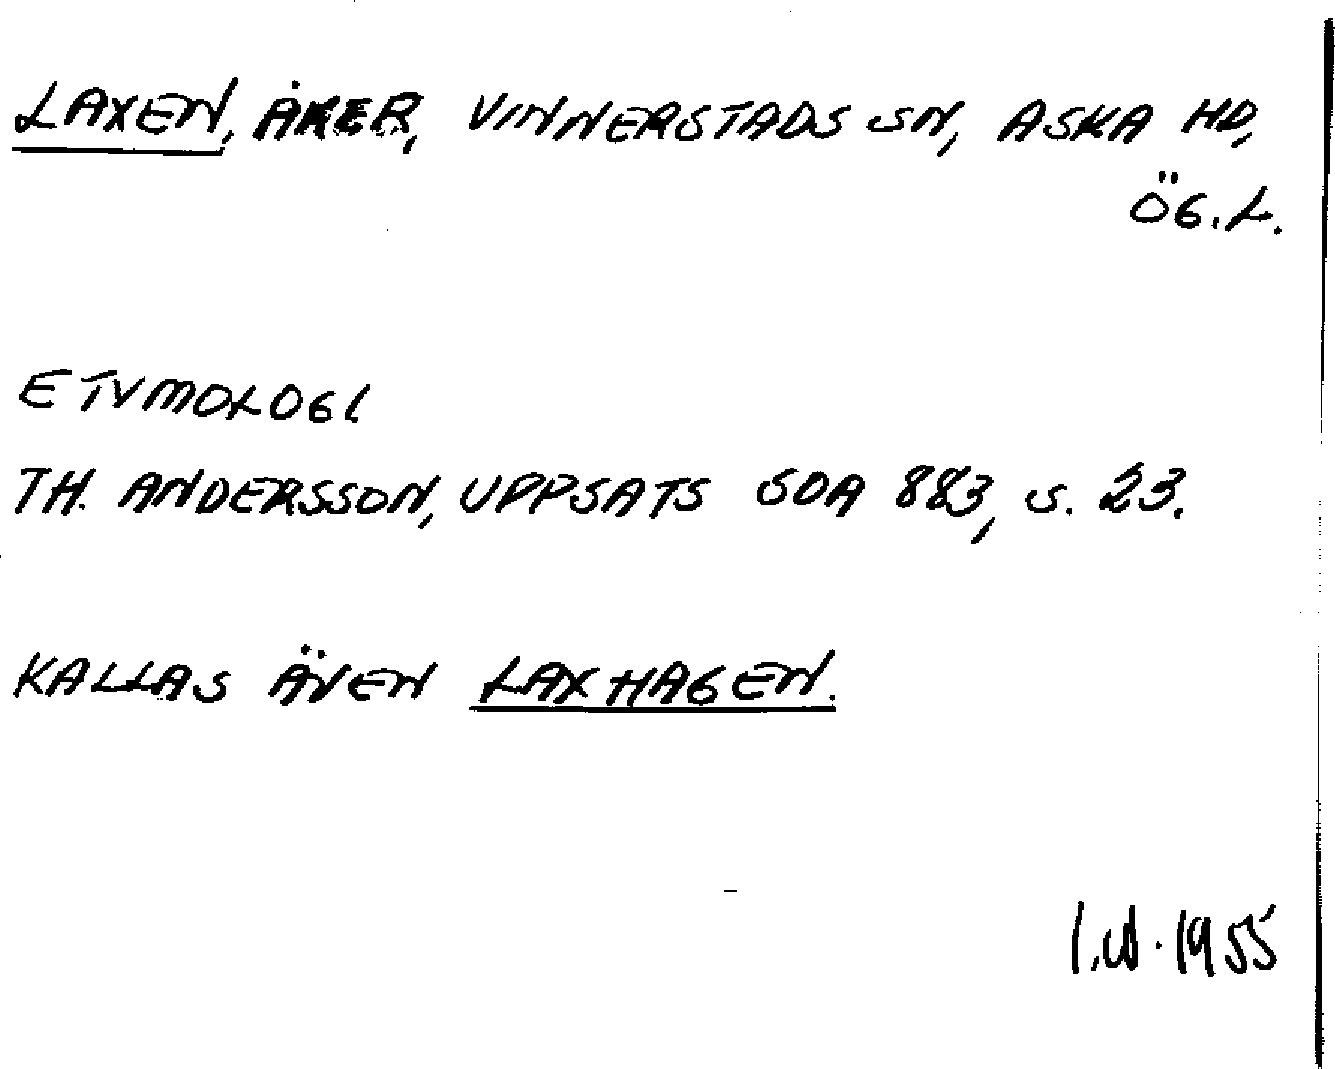 LAXEN, ÅKER, VINNERSTADS SN, ASKA HD,
ÖG.L.
ETYMOLOGI
TH. ANDERSSON, UPPSATS SOA 883, S. 23.
KALLAS ÄVEN LAXHAGEN.
1955